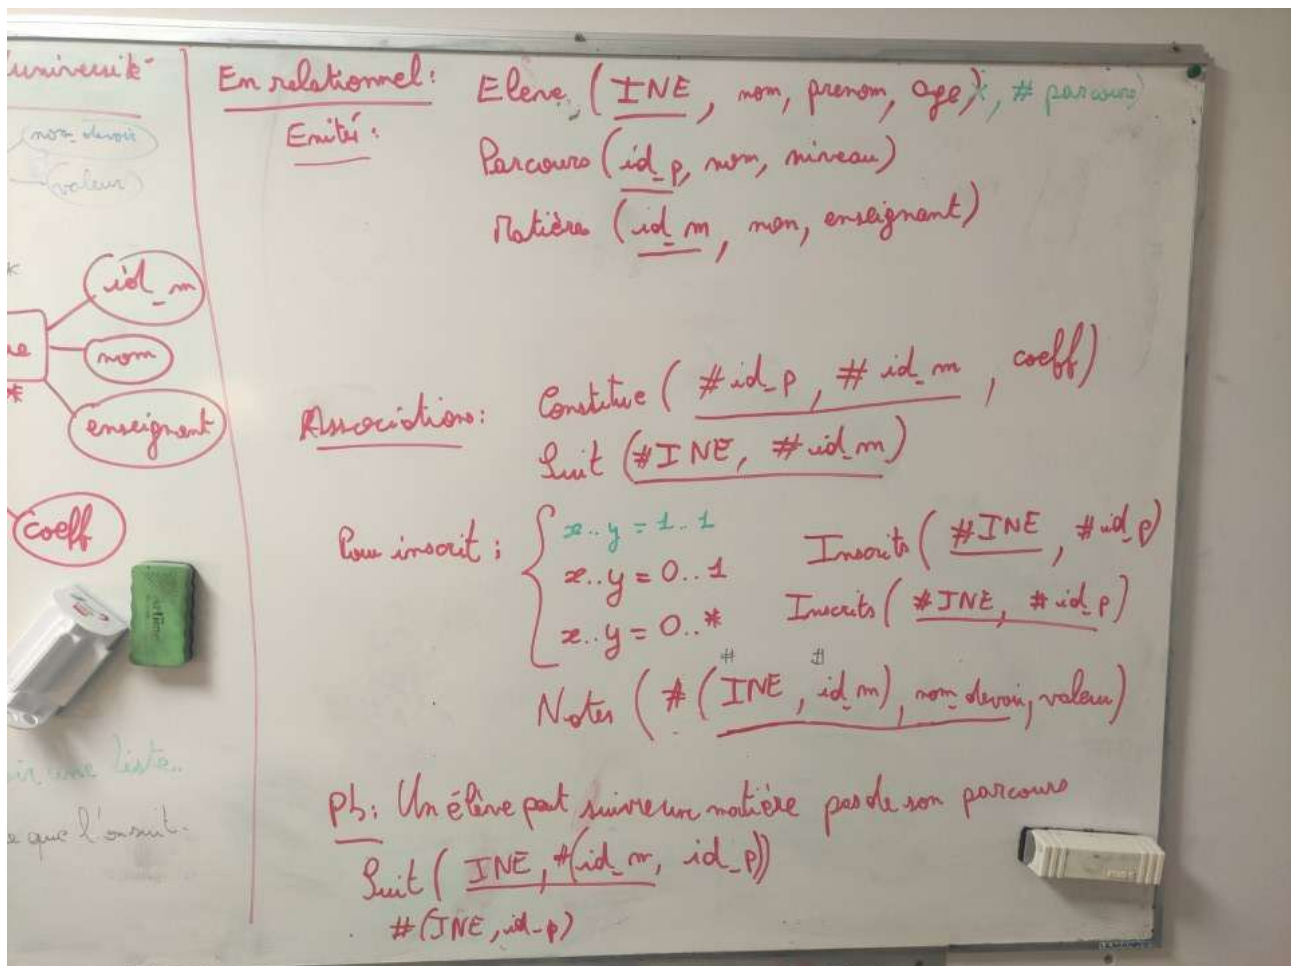 université
nom_devoir
valeur
id_m
nom
enseignent
*
coeff
ir une liste..
que l'on suit.
En relationnel: Eleve (INE, nom, prenom, age), # parcours)
Entité: Parcours (id_p, nom, niveau)
Matière (id_m, nom, enseignant)
Associations: Constitue (#id_p, #id_m, coeff)
Suit (#INE, #id_m)
Pour inscrit: { x..y = 1..1 Inscrits (#INE, #id_p)
x..y = 0..1
x..y = 0..* Inscrits (#INE, #id_p)
# #
Notes (#(INE, id_m), nom_devoir, valeur)
Pb: Un élève peut suivre une matière pas de son parcours
Suit (INE, #(id_m, id_p))
#(INE, id_p)